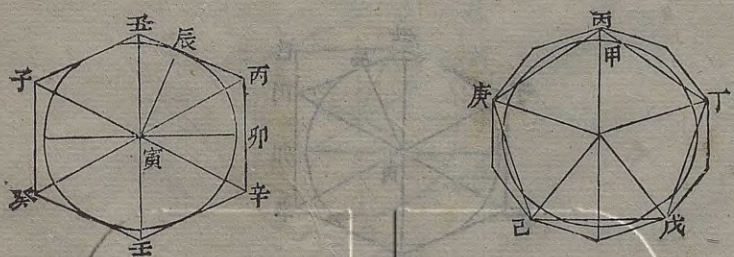 丑
辰
子
丙
寅
卯
癸
辛
壬
丙
甲
庚
丁
己
戊